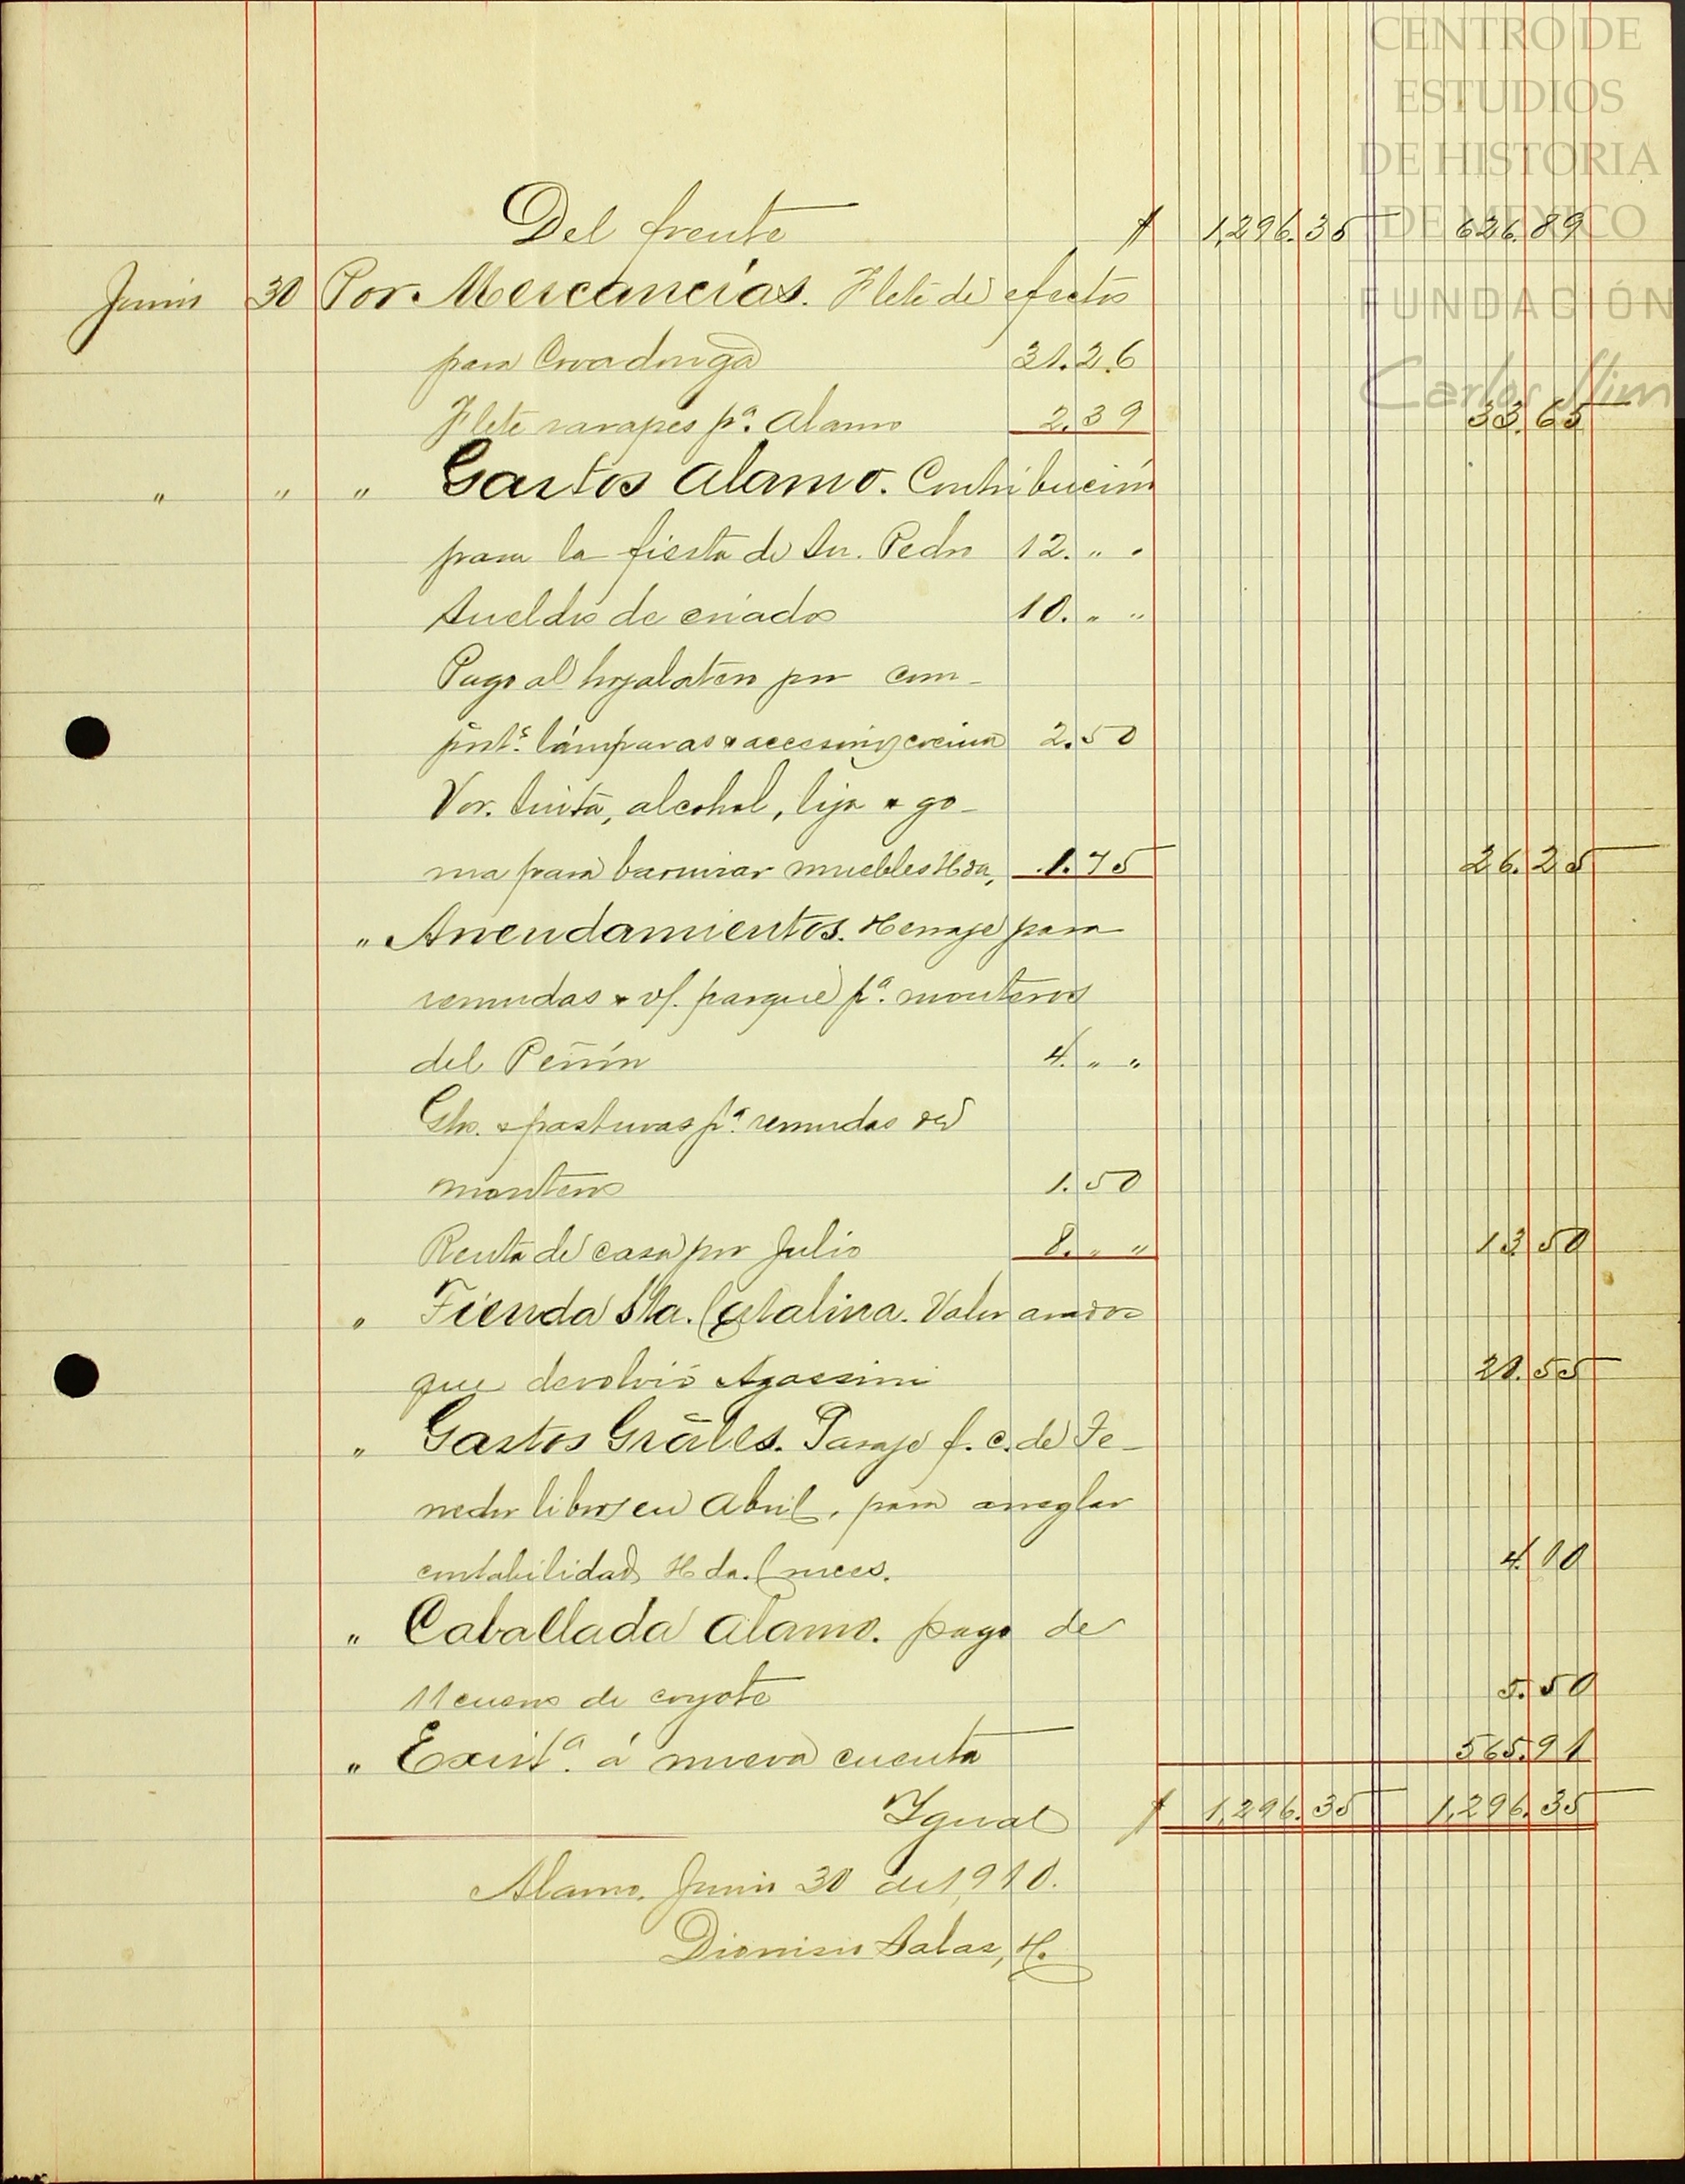 CENTRO DE
ESTUDIOS
DE HISTORIA
DE MEXICO
FUNDACIÓN
Carlos Slim
Del frente $ 1,296.35 626.89
Junio 30 Por Mercancías. Flete de efectos
para Covadonga 31.26
Flete sarapes pª. Alamo 2.39 33.65
" " " Gastos Alamo. Contribución
para la fiesta de Sn. Pedro 12. " "
Sueldos de criados 10. " "
Pago al hojalatero por com-
post.s lámparas & accesorios cocina 2.50
Vor. tinta, alcohol, lija & go-
ma para barnizar muebles Hda, 1.75 26.25
" Arrendamientos. Herraje para
remudas & v/. parque pª. monteros
del Peñón 4. " "
Gto. & pasturas pª. remudas del
montero 1.50
Renta de casa por Julio 8. " " 13.50
" Tienda Sta. Catalina. Valor arados
que devolvió Agassini 20.55
" Gastos Gráles. Pasaje f. c. de Te-
nedor libros en Abril, para arreglar
contabilidad Hda. Cruces. 4.00
" Caballada Alamo. pago de
11 cueros de coyote 5.50
" Existª. á nueva cuenta 565.91
Igual $ 1,296.35 1,296.35
Alamo. Junio 30 de 1,910.
Dionisio Salas, H.